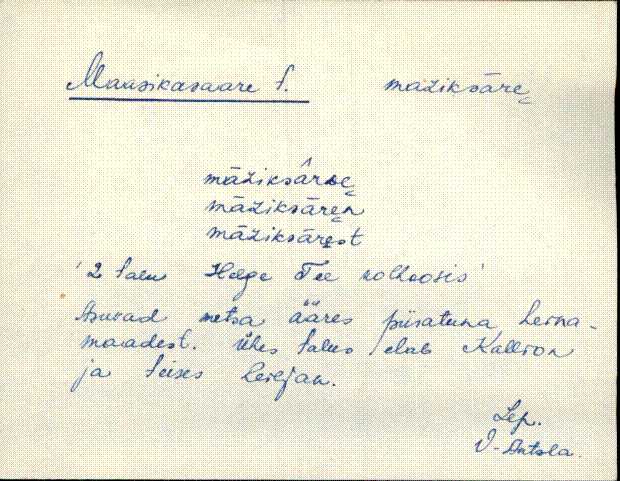 Maasikasaare t. māziksāre̜
māziksârɒe̜
māziksāre̜n
māziksāre̜st
'2 talu Helge Tee kolhoosis'
Asuvad metsa ääres piiratuna heina-
maadest. Ühes talus elab Kallion
ja teises Leiljan.
Lep.
V-Antsla.